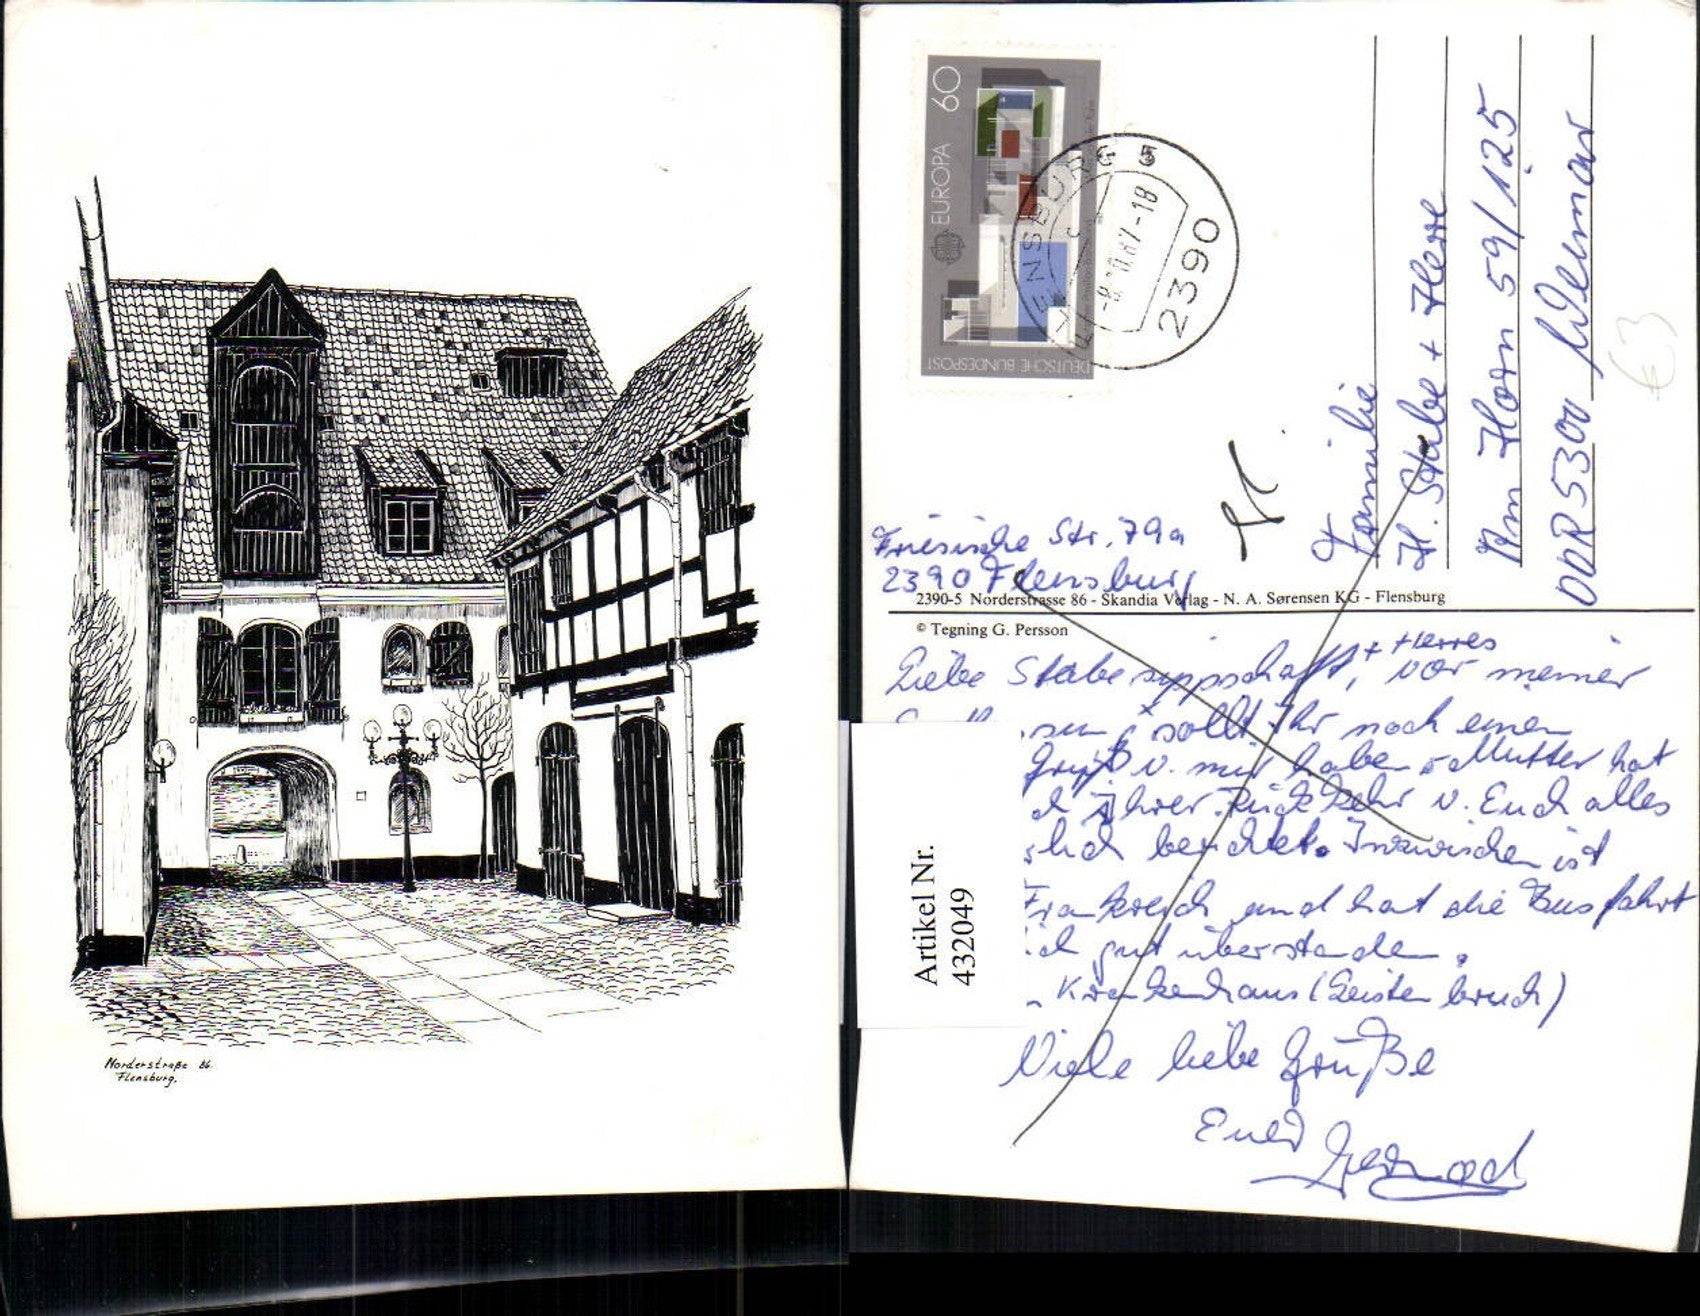 Norderstraße 86.
Flensburg.
60
EUROPA
DEUTSCHE BUNDESPOST
FLENSBURG 5
-8.10.87-18
2390
Familie
H. Stabe + Herre
Am Horn 59/125
DDR 5300 Weimar
€3
Friesische Str. 79a
2390 Flensburg
2390-5 Norderstrasse 86 - Skandia Verlag - N. A. Sørensen KG - Flensburg
© Tegning G. Persson
+ Herres
Liebe Stabesippschaft, vor meiner
sollt Ihr noch einen
Gruß v. mir haben. Mutter hat
ihrer Rückkehr v. Euch alles
berichtet. Inzwischen ist
Frankreich und hat die Busfahrt
gut überstanden.
Krankenhaus (Leistenbruch)
Viele liebe Grüße
Euer
Gernod
Artikel Nr.
432049